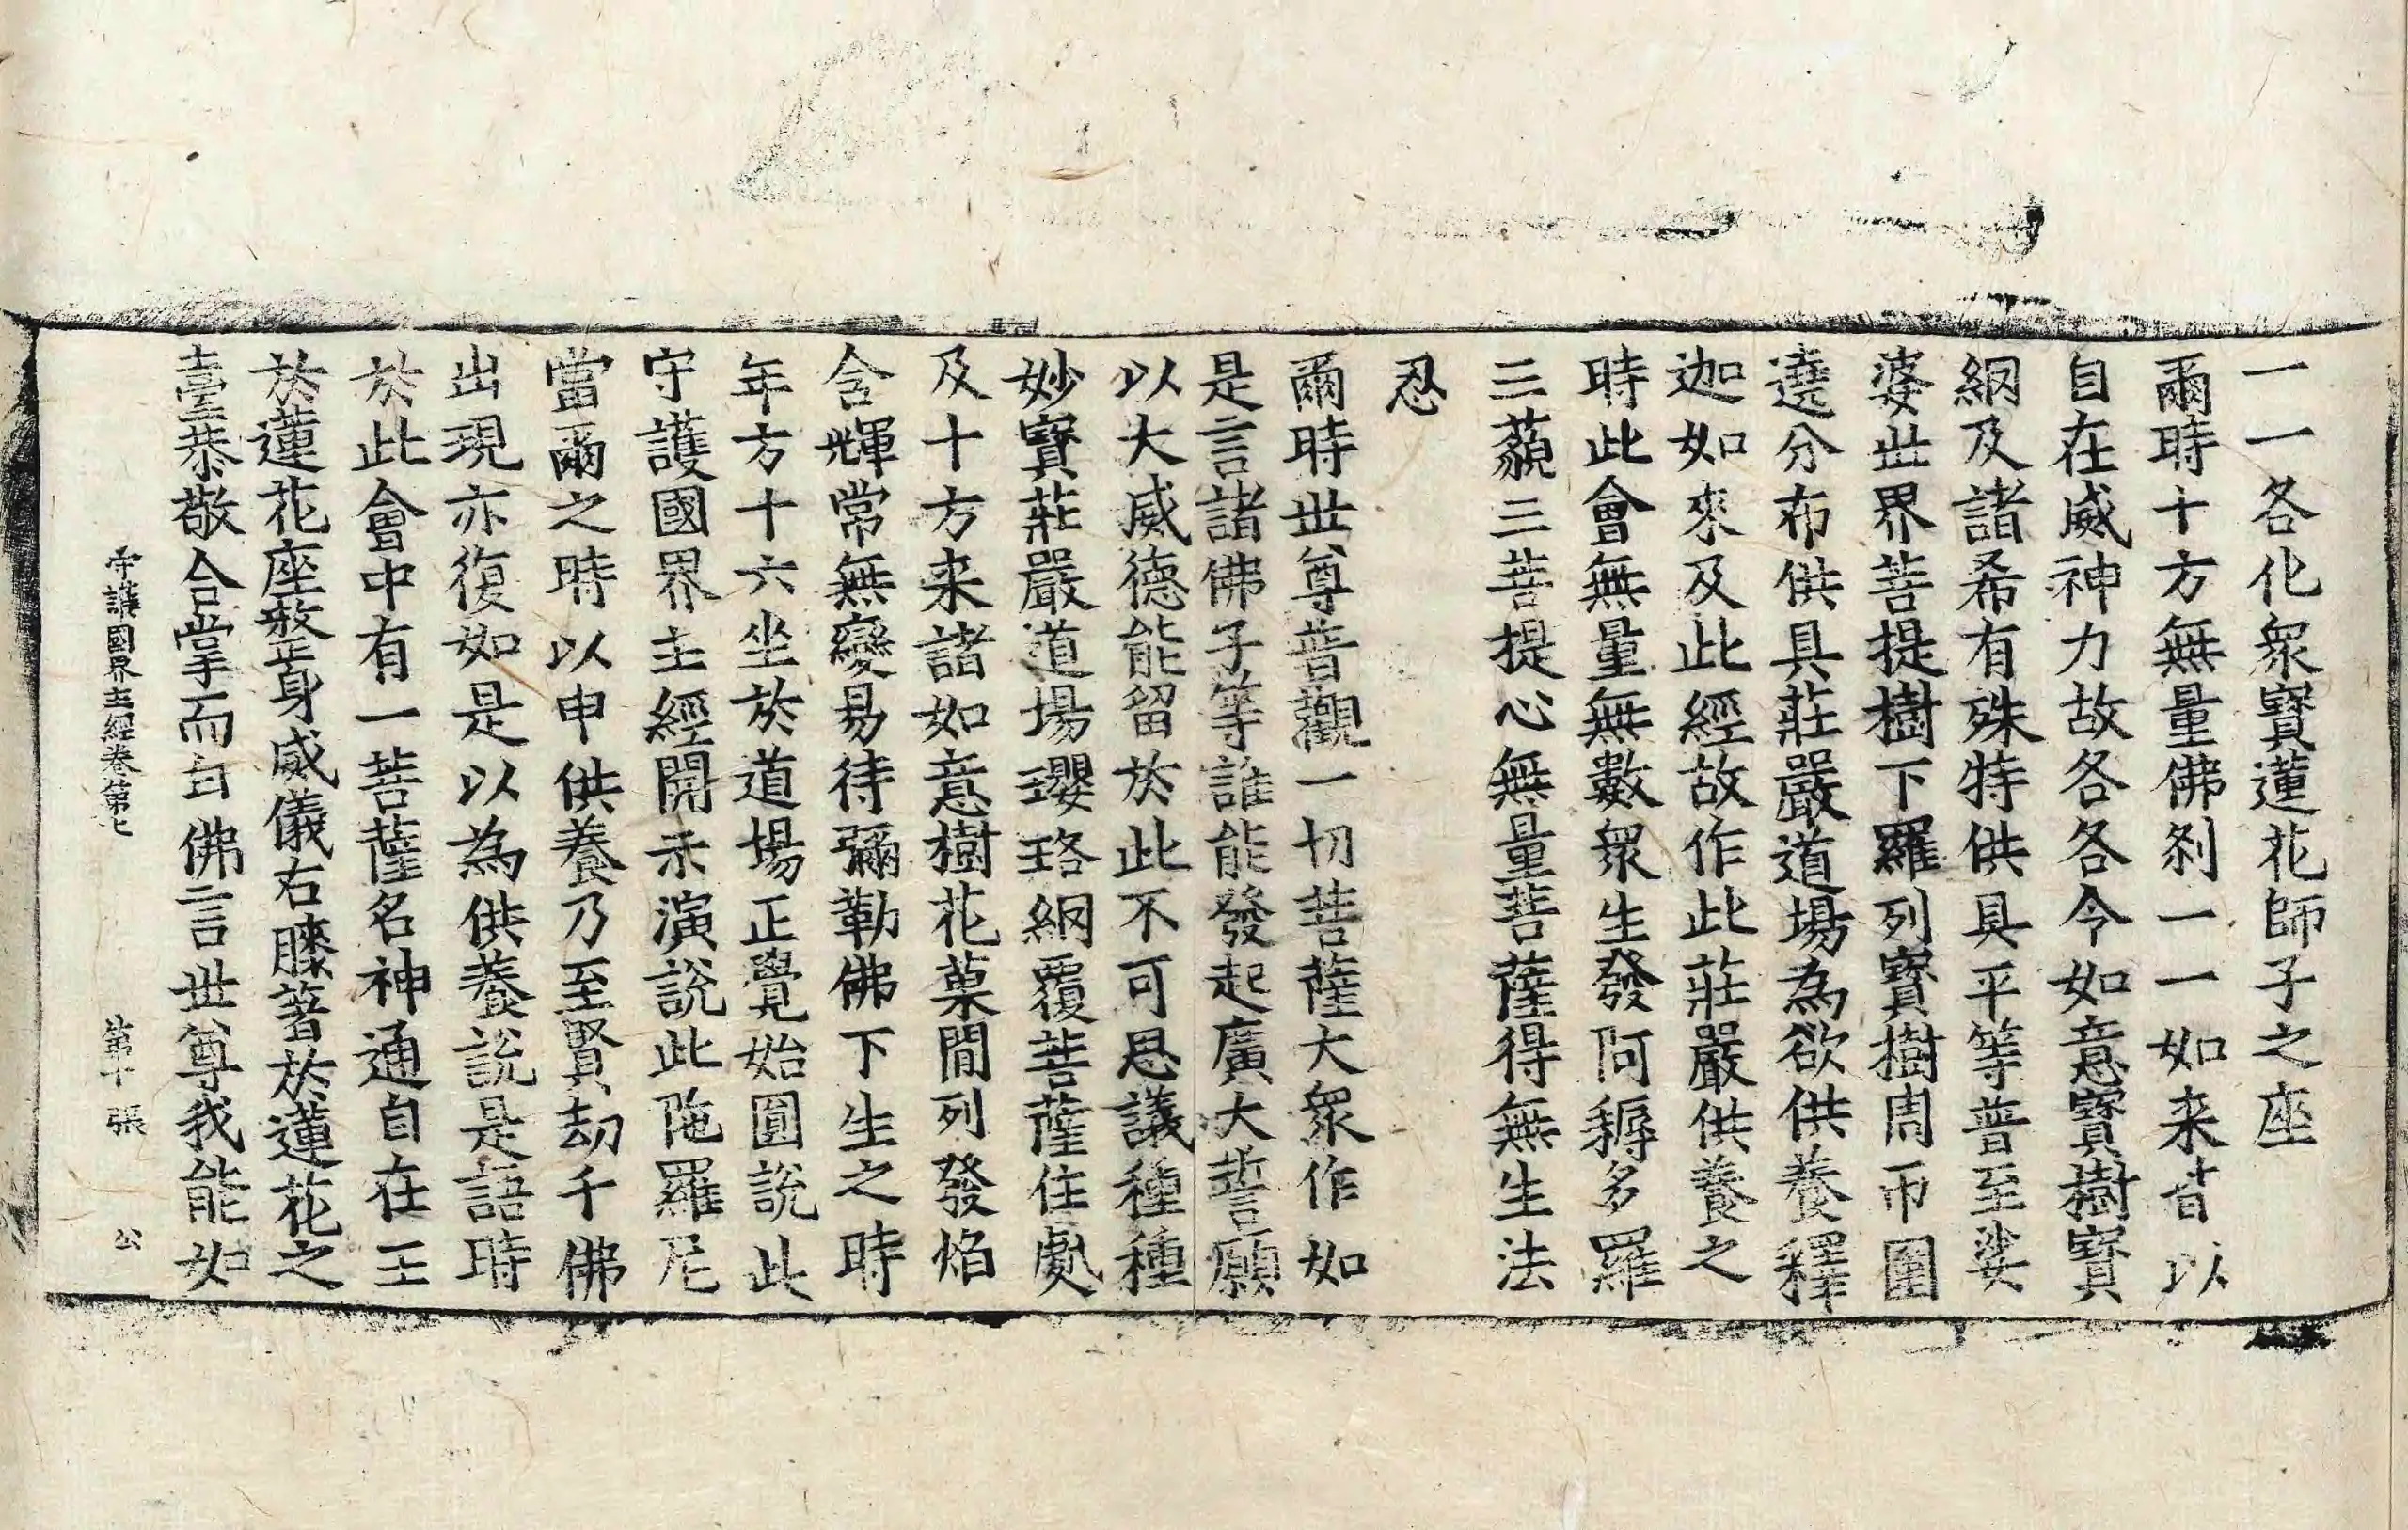 一一各化衆寳蓮花師子之座
爾時十方無量佛刹一一如来皆以
自在威神力故各各令如意寳樹寳
網及諸希有殊特供具平等普至娑
婆世界菩提樹下羅列寳樹周帀圍
遶分布供具莊嚴道場為欲供養釋
迦如來及此經故作此莊嚴供養之
時此會無量無數衆生發阿耨多羅
三藐三菩提心無量菩薩得無生法
忍
爾時世尊普觀一切菩薩大衆作如
是言諸佛子等誰能發起廣大誓願
以大威德能留於此不可思議種種
妙寳莊嚴道場瓔珞網覆菩薩住處
及十方来諸如意樹花菓閒列發焰
含輝常無變易待彌勒佛下生之時
年方十六坐於道場正覺始圓說此
守護國界主經開示演說此陁羅尼
當爾之時以申供養乃至賢劫千佛
出現亦復如是以為供養說是語時
於此會中有一菩薩名神通自在王
於蓮花座整身威儀右膝著於蓮花之
臺恭敬合掌而白佛言世尊我能如
守護國界主經卷第七 第十張 公